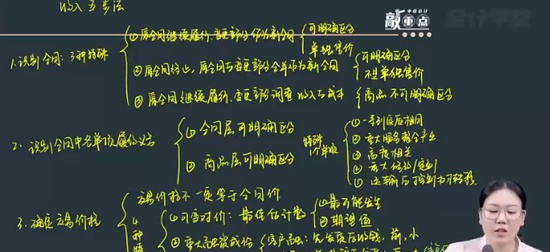 收入五步法
敲重点
中级会计
会计学堂
1.识别合同:3种特殊
①原合同继续履行,变更部分作为新合同
可明确区分
单独售价
②原合同终止,原合同与变更部分合并作为新合同
可明确区分
不是单独售价
③原合同继续履行,变更部分调整收入与成本
商品不可明确区分
2.识别合同中各单项履约义务
①合同层可明确区分
②商品层可明确区分
特殊
1个单项
①一系列实质相同
②重大服务整合产出
③高度相关
④重大修改/定制
3.确定交易价格
交易价格不一定等于合同价
4种特
①可变对价:最佳估计数
①最可能发生
②期望值
②重大融资成份